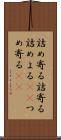 詰め寄る詰寄る
詰めよる つ
め寄る